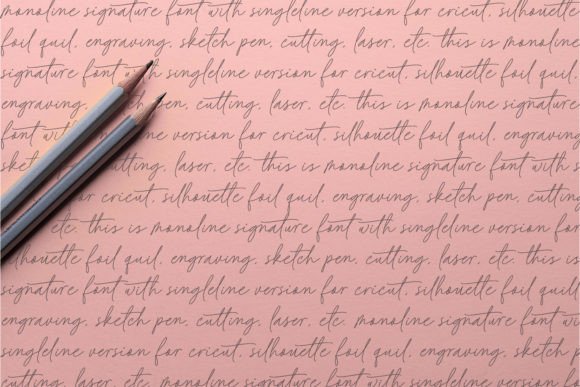 monoline signature font with singleline version for cricut, silhouette
foil quil, engraving, sketch pen, cutting, laser, etc. this is monoline
signature font with singleline version for cricut, silhouette foil quil,
engraving, sketch pen, cutting, laser, etc. this is monoline signature
font with version for cricut, silhouette foil quil, engraving
sketch pen, cutting, laser, etc. this is monoline signature font with
for cricut, silhouette foil quil, engraving, sketch pen, cutting
etc. this is monoline signature font with singleline version for
silhouette foil quil, engraving, sketch pen, cutting, laser, etc. this is monoline
signature font with singleline version for cricut, silhouette foil quill
engraving, sketch pen, cutting, laser, etc. monoline signature font with
singleline version for cricut, silhouette foil quil, engraving, sketch pen
cutting, laser, etc. this is monoline signature font with